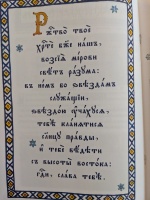 Ржⷭ҇тво̀ твоѐ
Хрⷭ҇тѐ бж҃е нашъ,
возсїѧ̀ мірови
свѣтъ разума:
въ немъ бо ѕвѣздамъ
служащїи
ѕвѣздою ᲂу҆чахꙋсѧ,
тебѣ кланѧтисѧ
сл҃нцꙋ правды,
и тебѐ вѣдѣти
съ высоты̀ востока:
гдⷭ҇и, слава тебѣ.